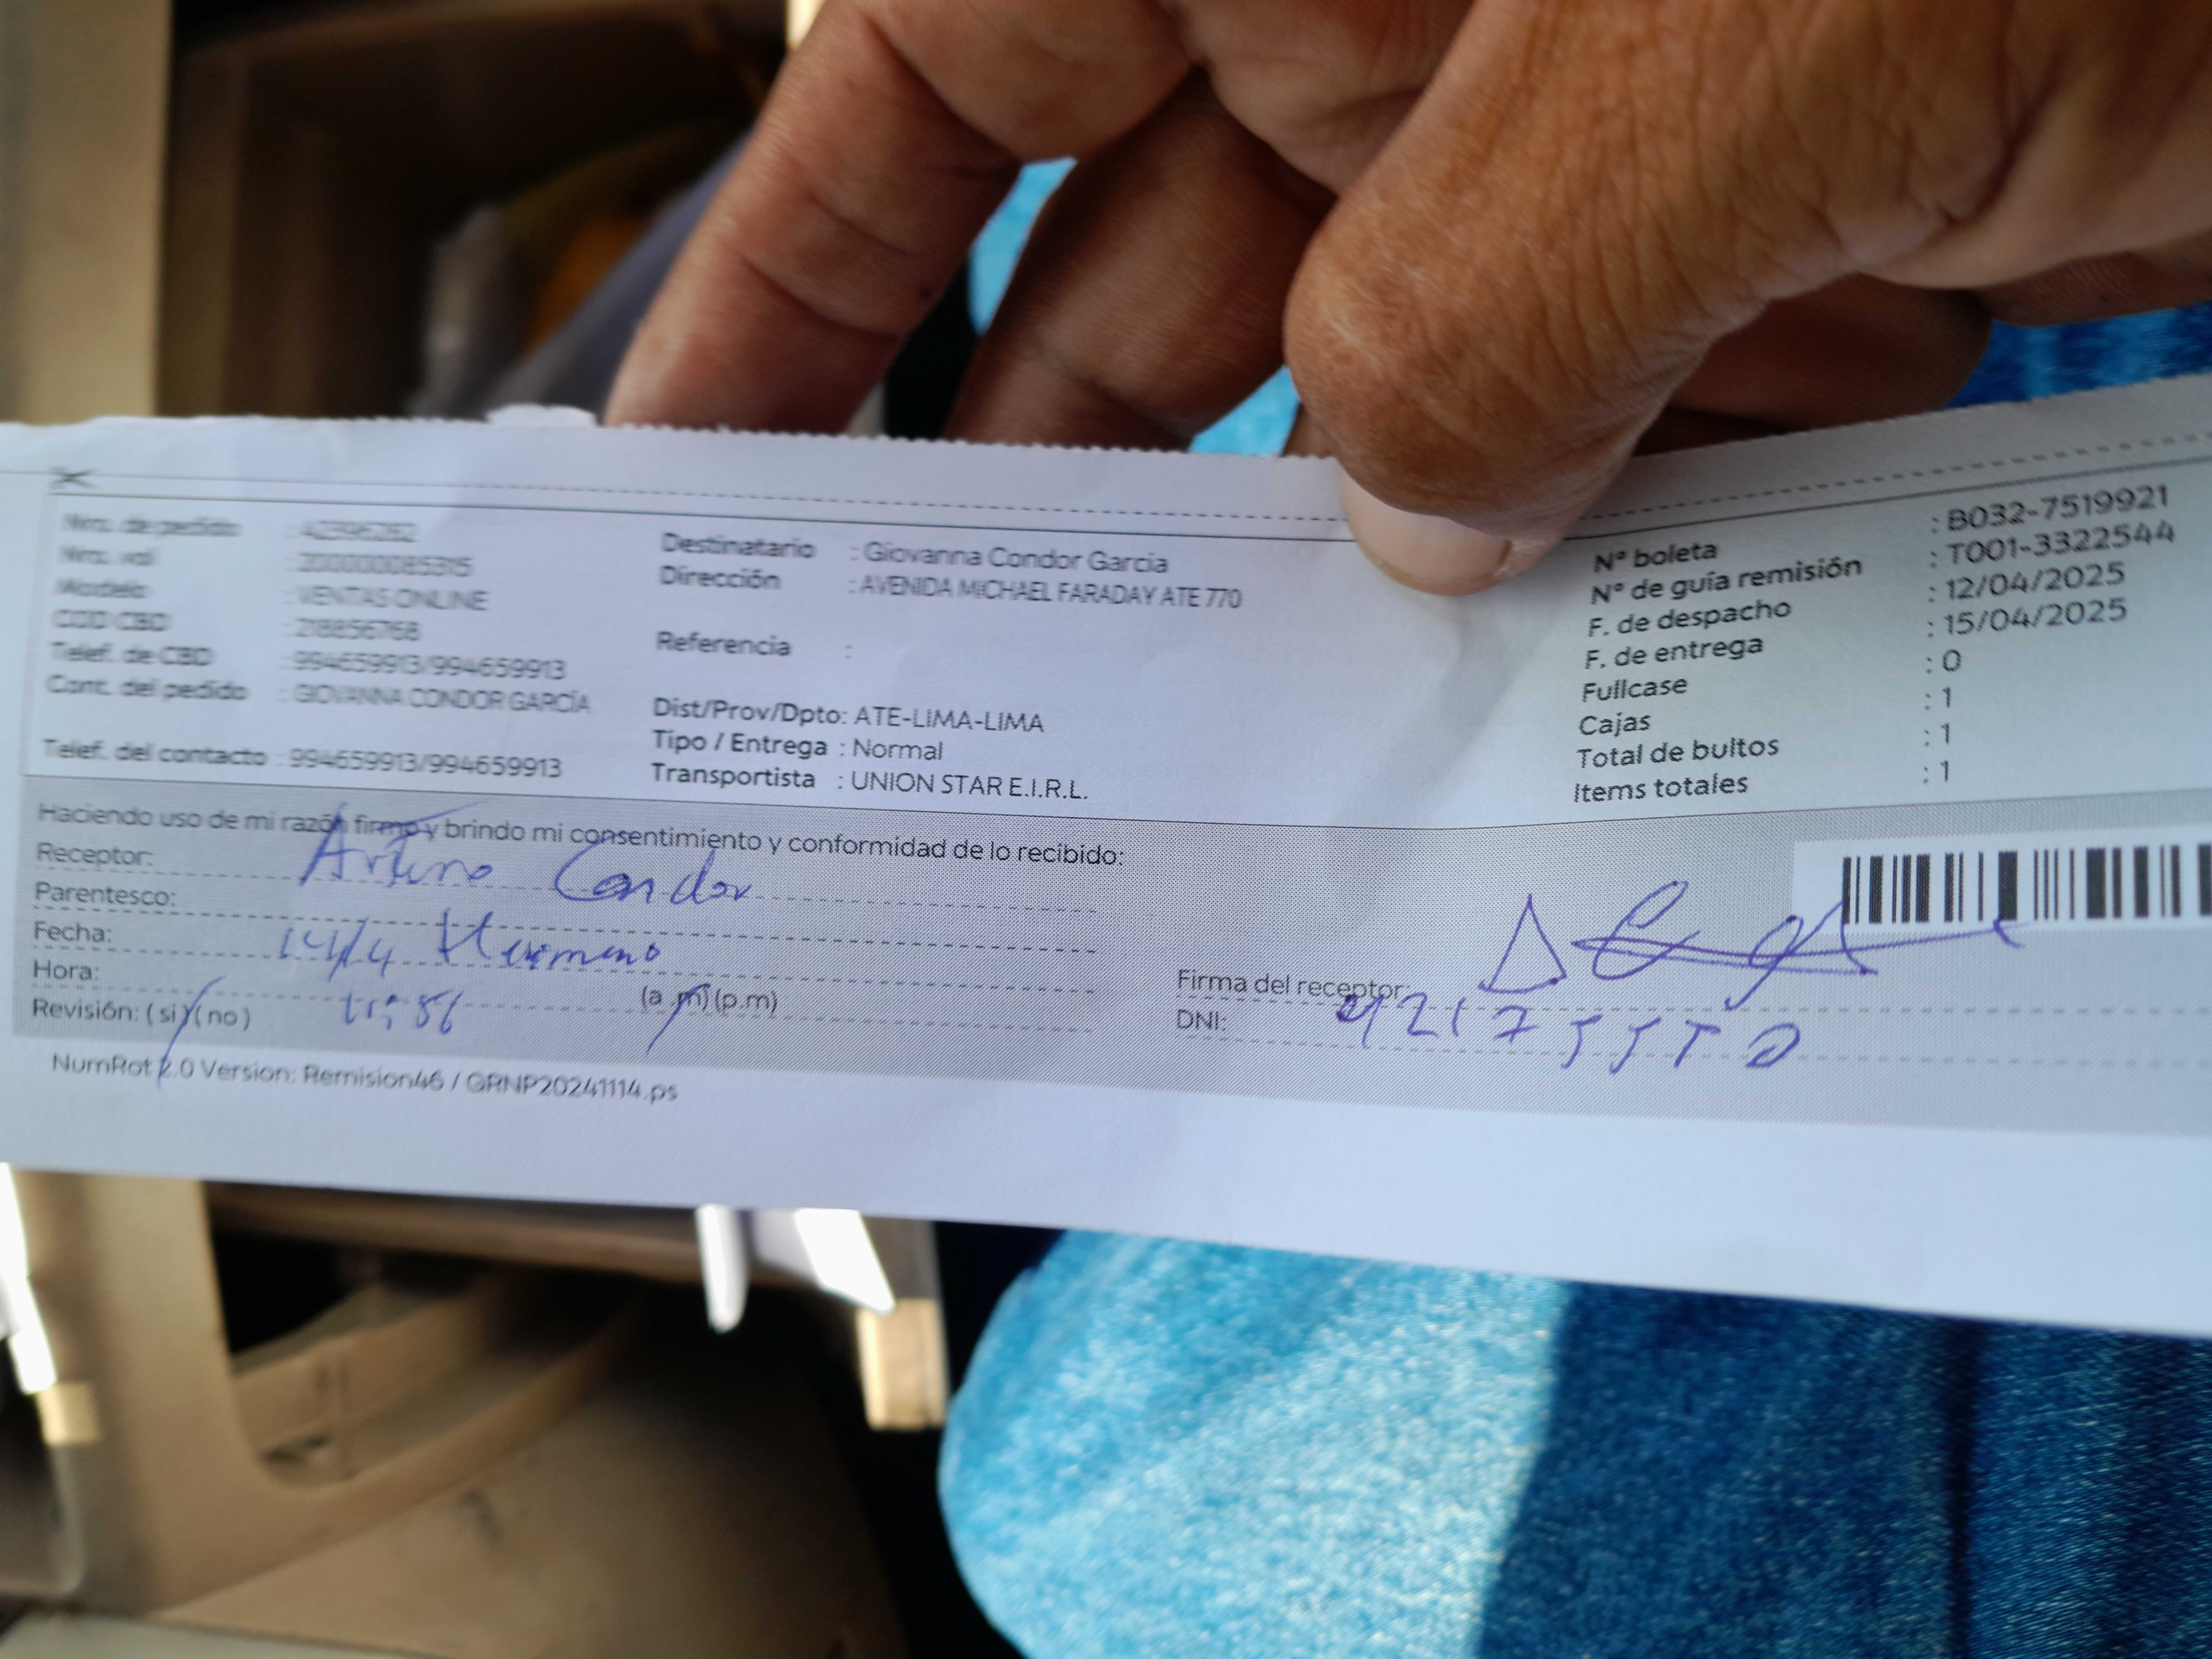 Nro. de pedido : 42396282
Nro. vol : 200000085315
Modelo : VENTAS ONLINE
COD CBD : 218856768
Telef. de CBD : 994659913/994659913
Cont. del pedido : GIOVANNA CONDOR GARCÍA
Telef. del contacto : 994659913/994659913
Destinatario : Giovanna Condor Garcia
Dirección : AVENIDA MICHAEL FARADAY ATE 770
Referencia :
Dist/Prov/Dpto: ATE-LIMA-LIMA
Tipo / Entrega : Normal
Transportista : UNION STAR E.I.R.L.
N° boleta : B032-7519921
N° de guía remisión : T001-3322544
F. de despacho : 12/04/2025
F. de entrega : 15/04/2025
Fullcase : 0
Cajas : 1
Total de bultos : 1
Items totales : 1
Haciendo uso de mi razón firmo y brindo mi consentimiento y conformidad de lo recibido:
Receptor: Arturo Condor
Parentesco:
Fecha: 14/4 Hermano
Hora: (a.m) (p.m)
Revisión: (si) (no)
Firma del receptor:
DNI:
NumRot 2.0 Version: Remision46 / GRNP20241114.ps